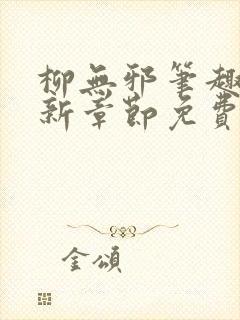 柳無邪筆趣
新章節免費
金頌